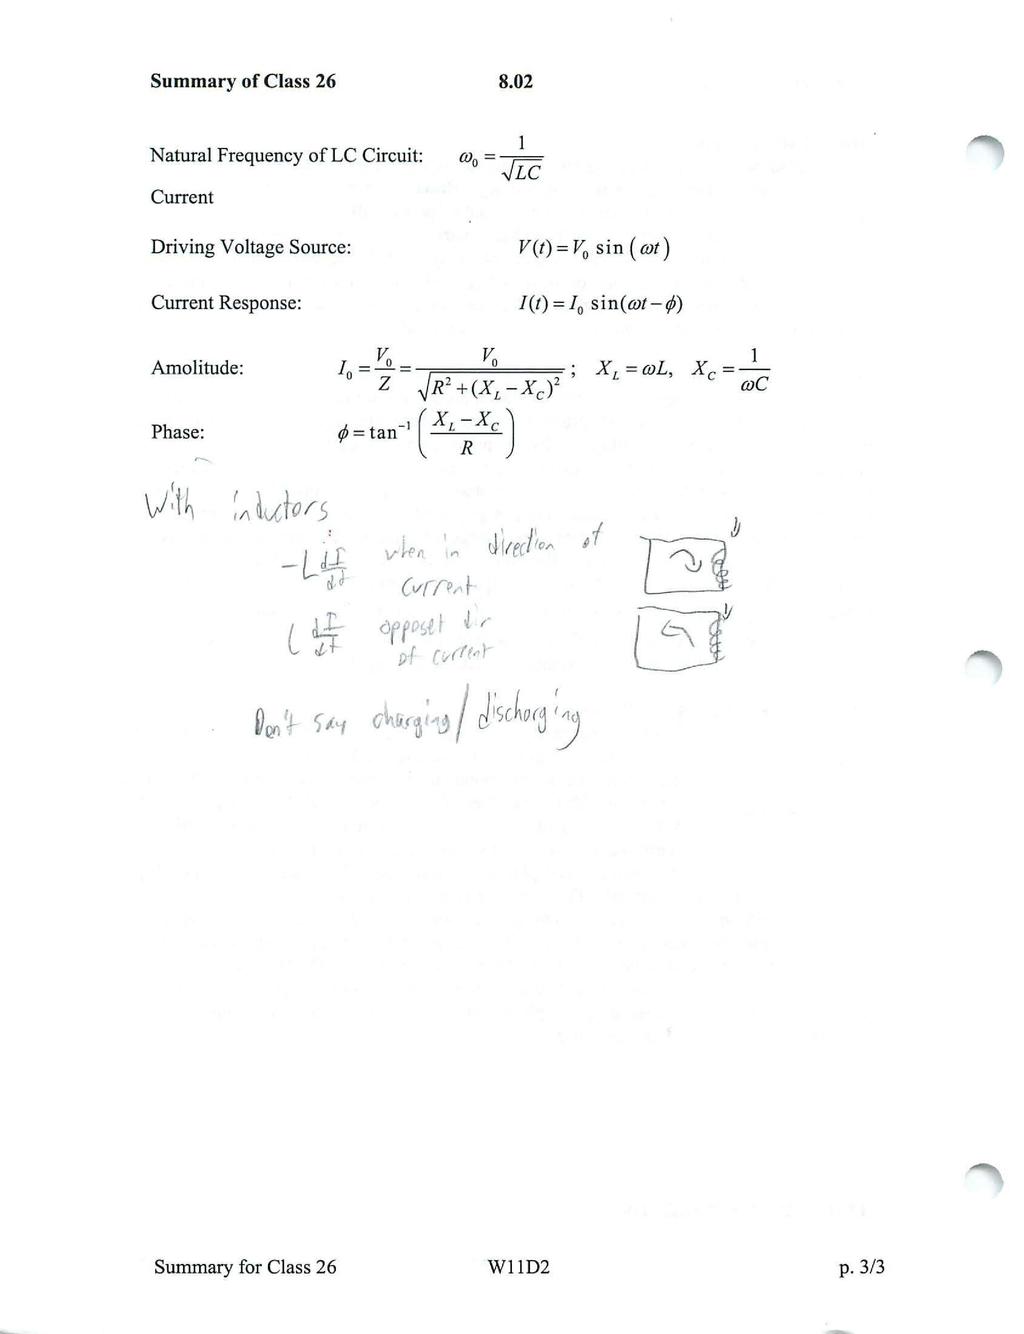 Summary of Class 26 8.02
Natural Frequency of LC Circuit: ω₀ = 1/√LC
Current
Driving Voltage Source: V(t) = V₀ sin(ωt)
Current Response: I(t) = I₀ sin(ωt − ϕ)
Amolitude: I₀ = V₀/Z = V₀/√(R² + (X_L − X_C)²) ; X_L = ωL, X_C = 1/ωC
Phase: ϕ = tan⁻¹((X_L − X_C)/R)
With inductors
−L dI/dt when in direction of
current
L dI/dt opposet dir
of current
Don't say charging/discharging
Summary for Class 26 W11D2 p. 3/3